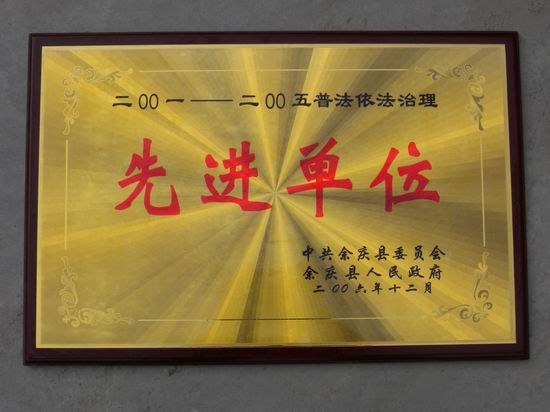 二00一——二00五普法依法治理
先进单位
中共余庆县委员会
余庆县人民政府
二00六年十二月